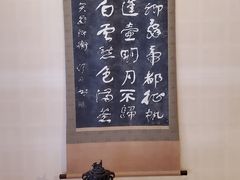 卿辭帝都征帆
蓬壺明月不歸
白雲愁色滿蒼
哭晁卿衡